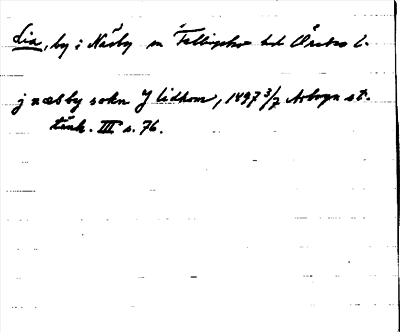 Lia, by i Näsby sn Fellingsbro hd Örebro l.
j næsby sokn J lidhom, 1497 3/7 Arboga st.
tänk. III s. 76.